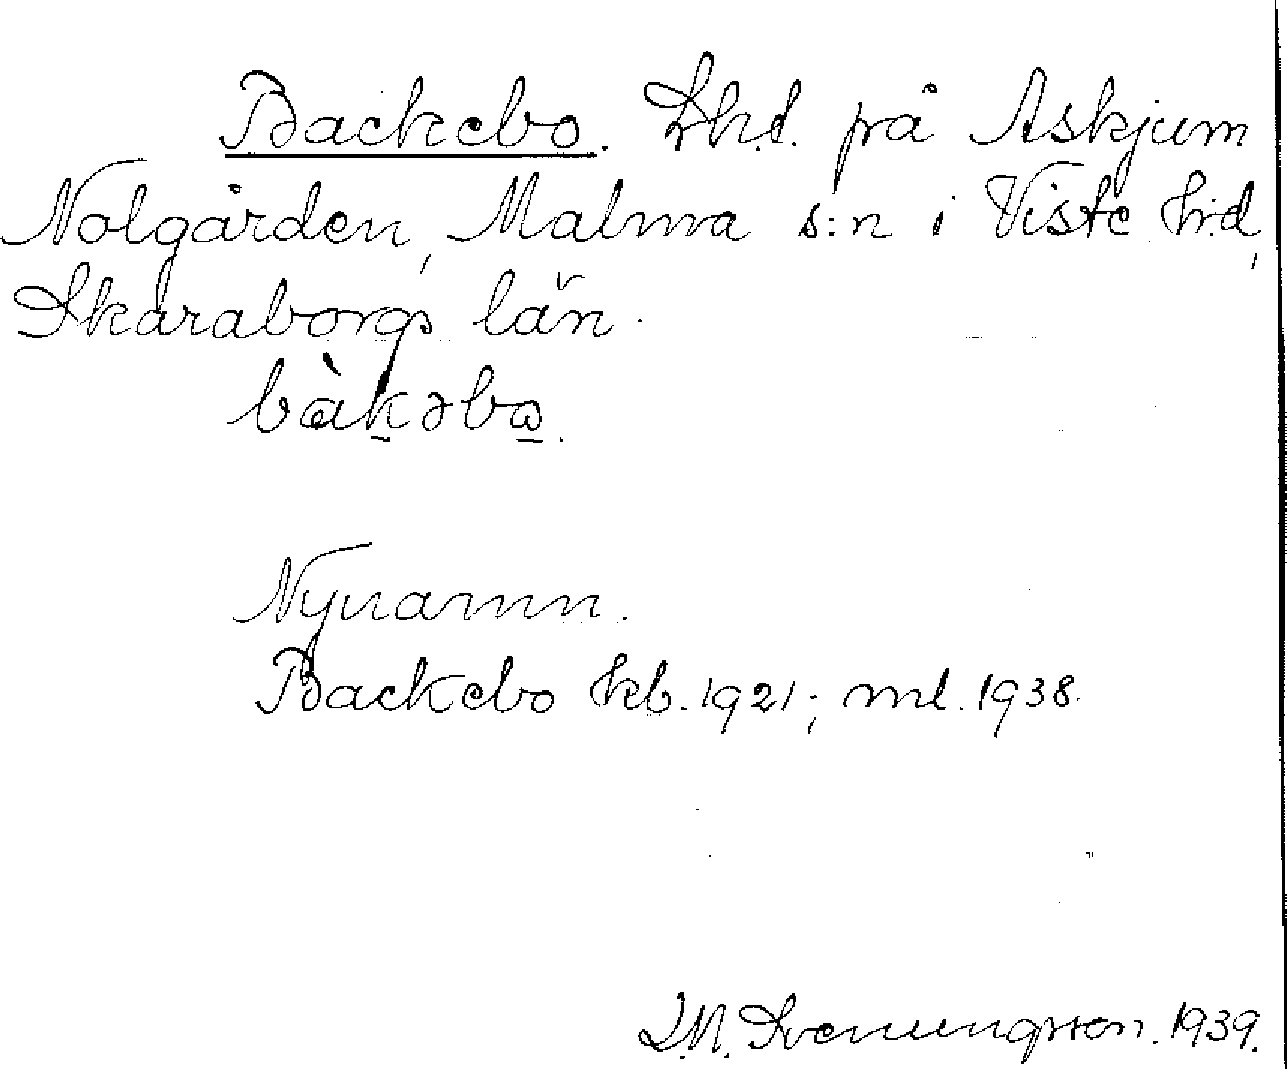 Backebo. Lh.d. på Askjum
Nolgården, Malma s:n i Viste h:d,
Skaraborgs län.
bàkəbω.
Nynamn.
Backebo kb. 1921; ml. 1938.
Svenungsson. 1939.